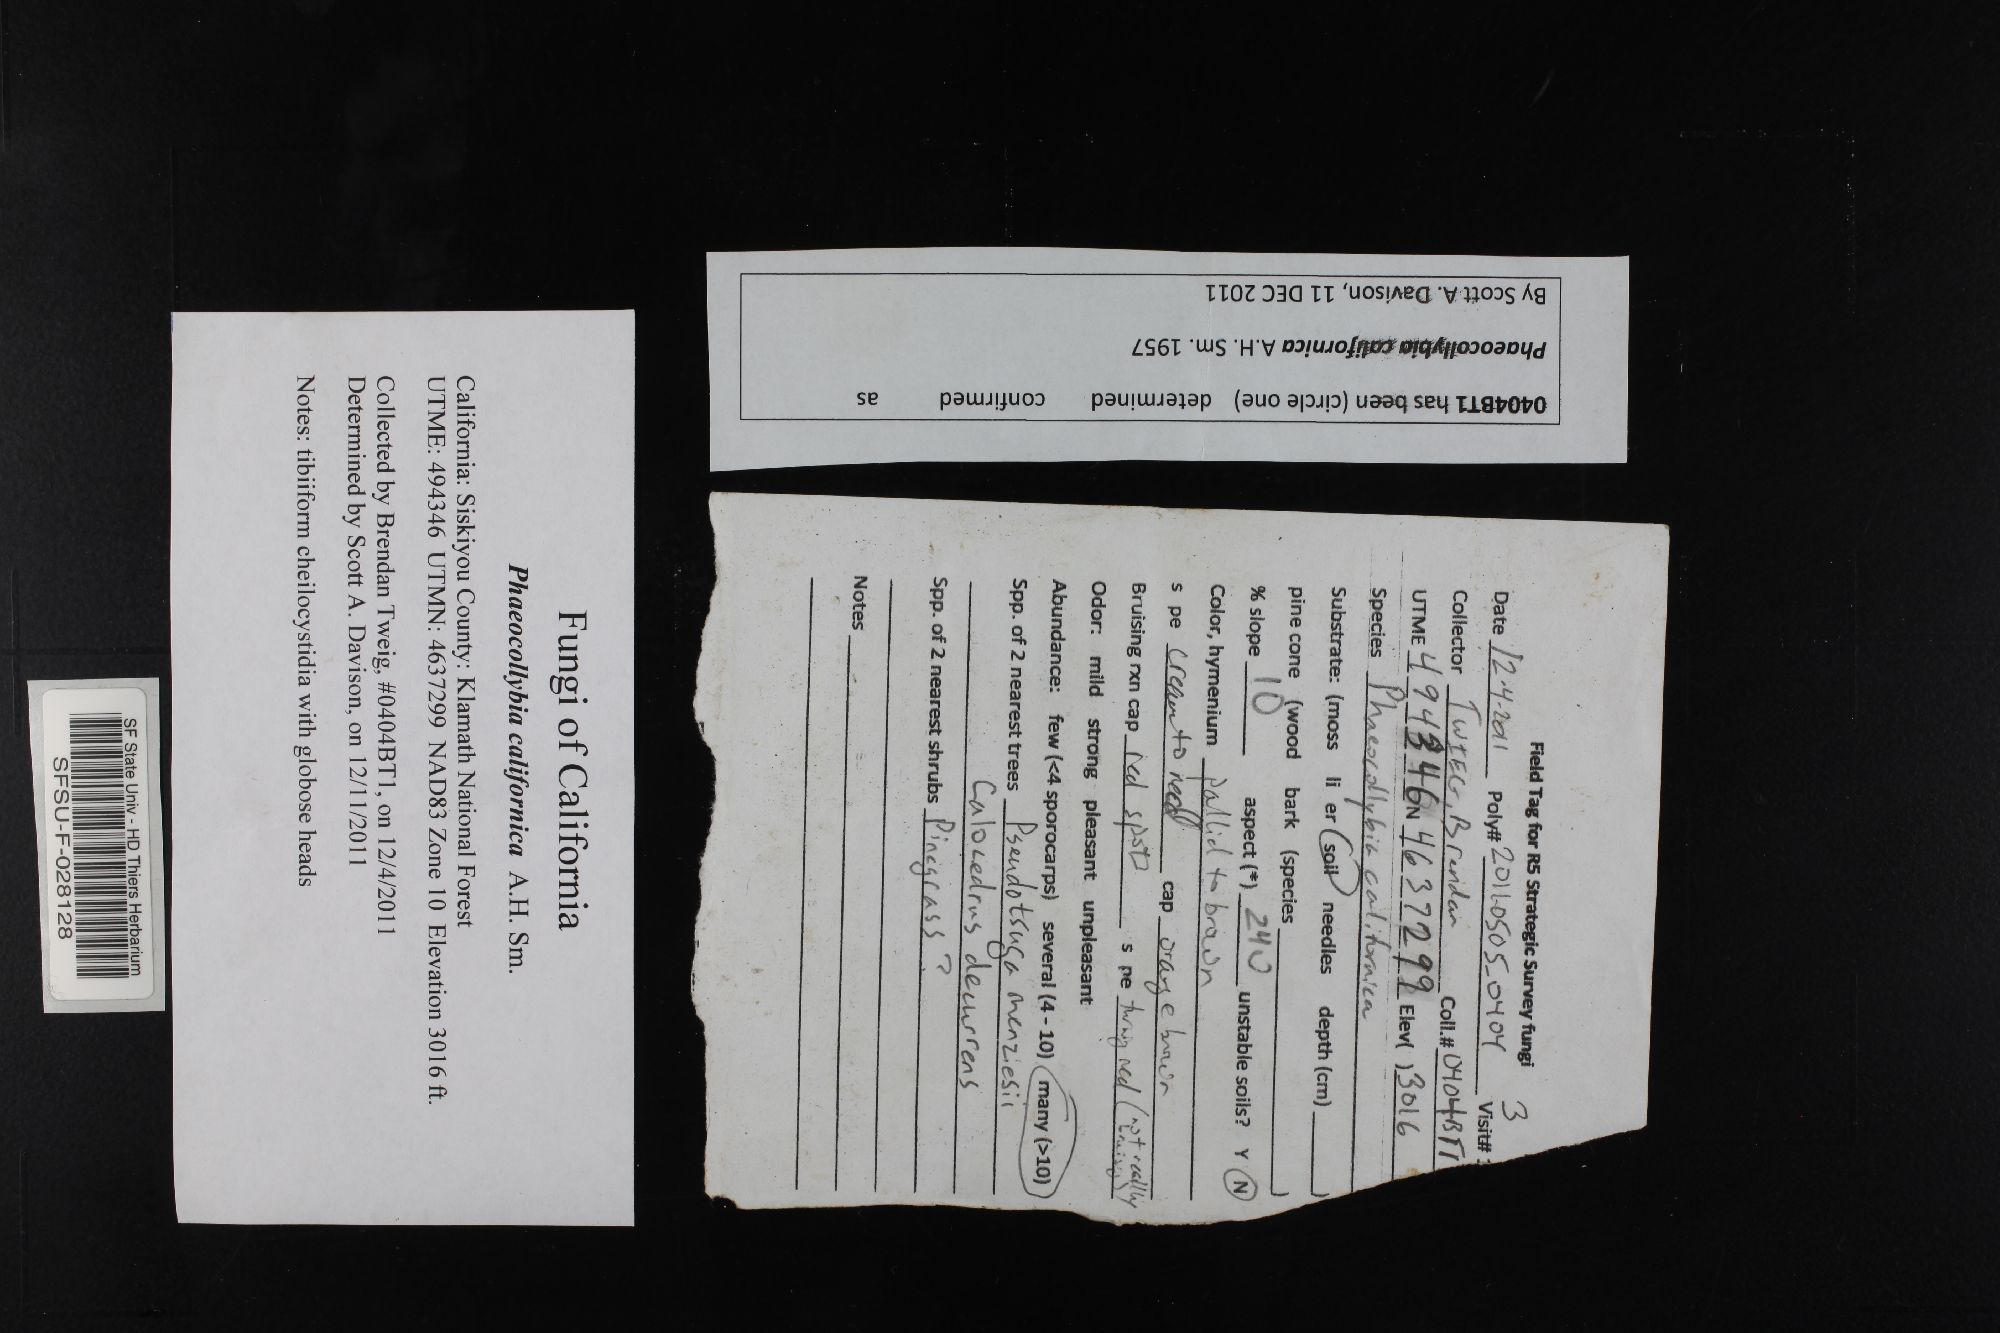 Fungi of California
Phaeocollybia californica A.H. Sm.
California: Siskiyou County: Klamath National Forest
UTME: 494346 UTMN: 4637299 NAD83 Zone 10 Elevation 3016 ft.
Collected by Brendan Tweig, #0404BT1, on 12/4/2011
Determined by Scott A. Davison, on 12/11/2011
Notes: tibiiform cheilocystidia with globose heads
SF State Univ - HD Thiers Herbarium
SFSU-F-028128
0404BT1 has been (circle one) determined confirmed as
Phaeocollybia californica A.H. Sm. 1957
By Scott A. Davison, 11 DEC 2011
Field Tag for R5 Strategic Survey fungi
Date 12-4-2011 Poly# 2011-0505_0404 Visit# 3
Collector TWIEG, Brendan Coll.# 0404BT1
UTME 494346 N 4637299 Elev( ) 3016
Species Phaeocollybia californica
Substrate: (moss li er soil needles depth (cm)
pine cone (wood bark (species )
% slope 10 aspect (*) 240 unstable soils? Y N
Color, hymenium pallid to brown
s pe cream to red cap orange brown
Bruising rxn cap red spots s pe turning red (not really
Odor: mild strong pleasant unpleasant
Abundance: few (<4 sporocarps) several (4 - 10) many (>10)
Spp. of 2 nearest trees Pseudotsuga menziesii
Calocedrus decurrens
Spp. of 2 nearest shrubs Pinegrass ?
Notes